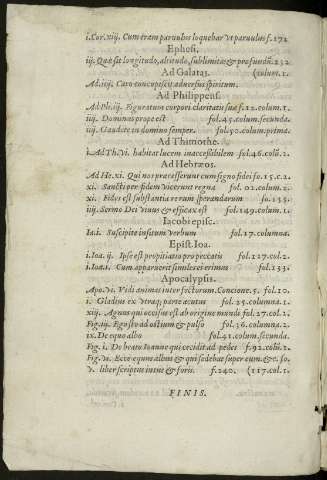 i. Cor. xiij. Cum eram paruulus loquebar vt paruulus f. 272
Ephesi.
iij. Quæ sit longitudo, altitudo, sublimitas & profundū. 232.
Ad Galatas. (colum. 1.
Ad. iiij. Caro concupiscit aduersus spiritum.
Ad Philippens.
Ad Ph. iij. Figuratum corpori claritatis suæ f. 12. colum. 1.
iiij. Dominus prope est fol. 45. colum. secunda.
iiij. Gaudete in domino semper. fol. 50. colum. prima.
Ad Thimothe.
i. Ad Th. vi. habitat lucem inaccessibilem fol. 46. colū. 2.
Ad Hebræos.
Ad He. xi. Qui nos præcesserunt cum signo fidei fo. 15. c. 2
xi. Sancti per fidem vicerunt regna fol. 02. colum. 2.
xi. Fides est substantia rerum sperandarum fo. 135.
iiij. Sermo Dei viuus & efficax est fol. 149. colum. 1.
Iacobi episc.
Ia. i. Suscipite insitum verbum fol. 17. columna.
Epist. Ioa.
i. Ioa. ij. Ipse est propitiatio pro peccatis fol. 127. col. 2.
i. Ioa. 1. Cum apparuerit similes ei erimus fol. 133.
Apocalypsis.
Apo. vi. Vidi animas interfectorum. Concione. 5. fol. 10.
i. Gladius ex vtraq; parte acutus fol. 25. columna 1.
xiij. Agnus qui occisus est ab origine mundi fol. 27. col. 2.
Fig. iij. Ego sto ad ostium & pulso fol. 16. columna 2.
ix. De equo albo fol. 41. colum. secunda.
Fig. i. De beato Ioanne qui cecidit ad pedes f. 92. colū. 2.
Fig. vi. Ecce equus albus & qui sedebat super eum. &c. fo.
v. liber scriptus intus & foris. f. 240. (117. col. 1.
FINIS.